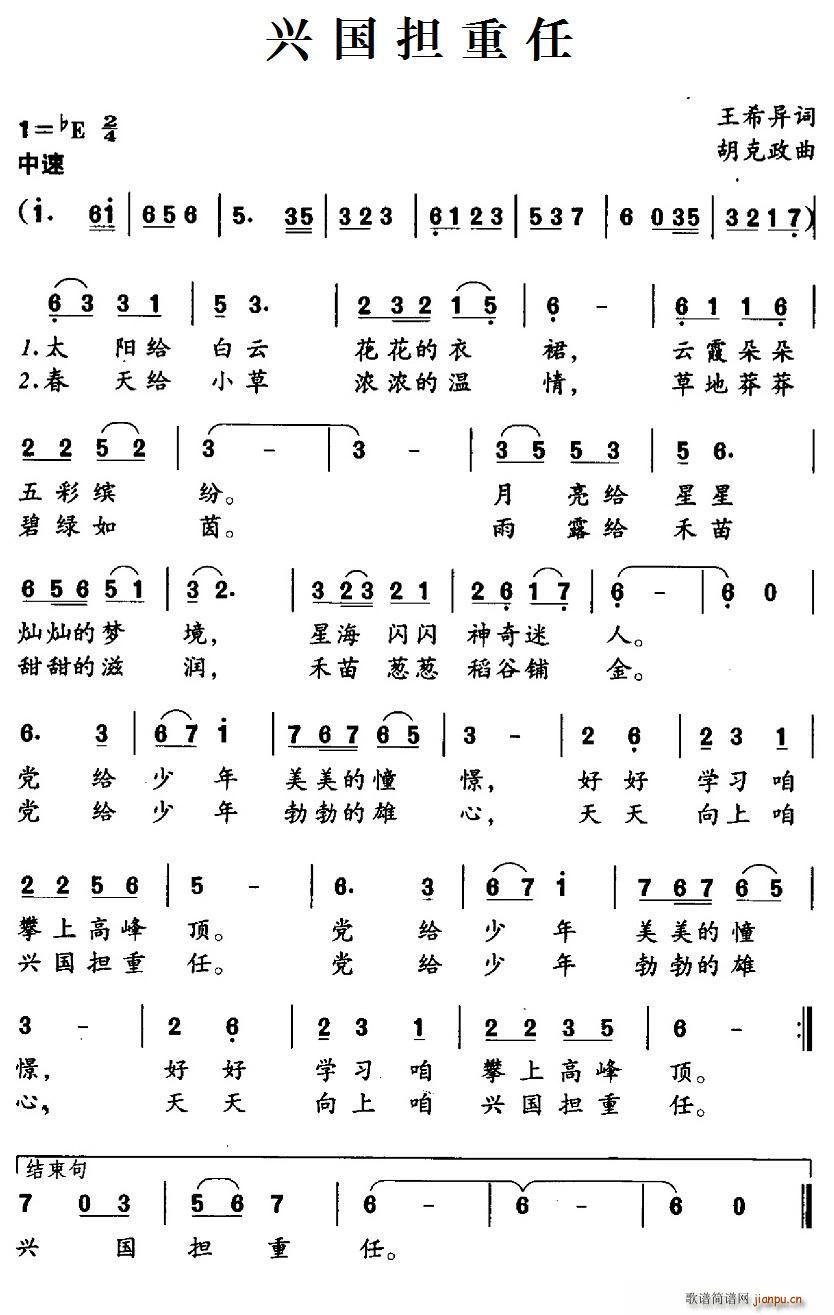 兴国担重任
1=♭E 2/4
王希异词
中速
胡克政曲
(i. 6i | 656 | 5. 35 | 323 | 6123 | 537 | 6 035 | 3217)
6 3 3 1 | 5 3. | 2 3 2 1 5 | 6 - | 6 1 1 6
1.太 阳给 白云 花花的衣 裙, 云霞朵朵
2.春 天给 小草 浓浓的温 情, 草地莽莽
2 2 5 2 | 3 - | 3 - | 3 5 5 3 | 5 6.
五彩缤 纷。 月 亮给 星星
碧绿如 茵。 雨 露给 禾苗
6 5 6 5 1 | 3 2. | 3 2 3 2 1 | 2 6 1 7 | 6 - | 6 0
灿灿的梦 境, 星海 闪闪 神奇迷 人。
甜甜的滋 润, 禾苗 葱葱 稻谷铺 金。
6. 3 | 6 7 i | 7 6 7 6 5 | 3 - | 2 6 | 2 3 1
党 给 少 年 美美的憧 憬, 好 好 学习 咱
党 给 少 年 勃勃的雄 心, 天 天 向上 咱
2 2 5 6 | 5 - | 6. 3 | 6 7 i | 7 6 7 6 5
攀上高峰 顶。 党 给 少 年 美美的憧
兴国担重 任。 党 给 少 年 勃勃的雄
3 - | 2 6 | 2 3 1 | 2 2 3 5 | 6 - :‖
憬, 好 好 学 习 咱 攀上高峰 顶。
心, 天 天 向 上 咱 兴国担重 任。
结束句
7 0 3 | 5 6 7 | 6 - | 6 - | 6 0 ‖
兴 国 担 重 任。
歌谱简谱网
jianpu.cn